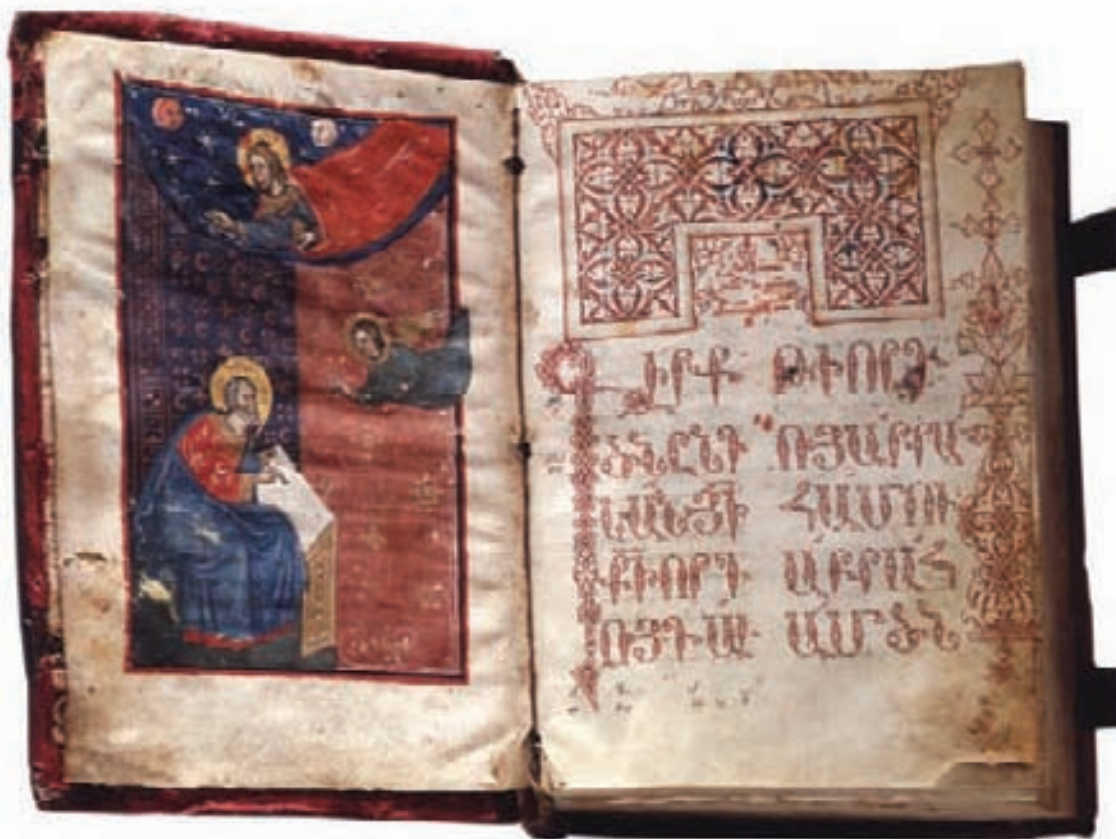 ԳԻՐՔ
ԾՆԸՆԴ
ԵԱՆՅԻ
ՔԻՈՐԴ
ՈՅԴԱՒ
ԹԻՈՐԴ
ՈՅԱԲՐԱ
ՀԱՄՈՒ
ԱԲՐԱՀ
ԱՄԾՆ